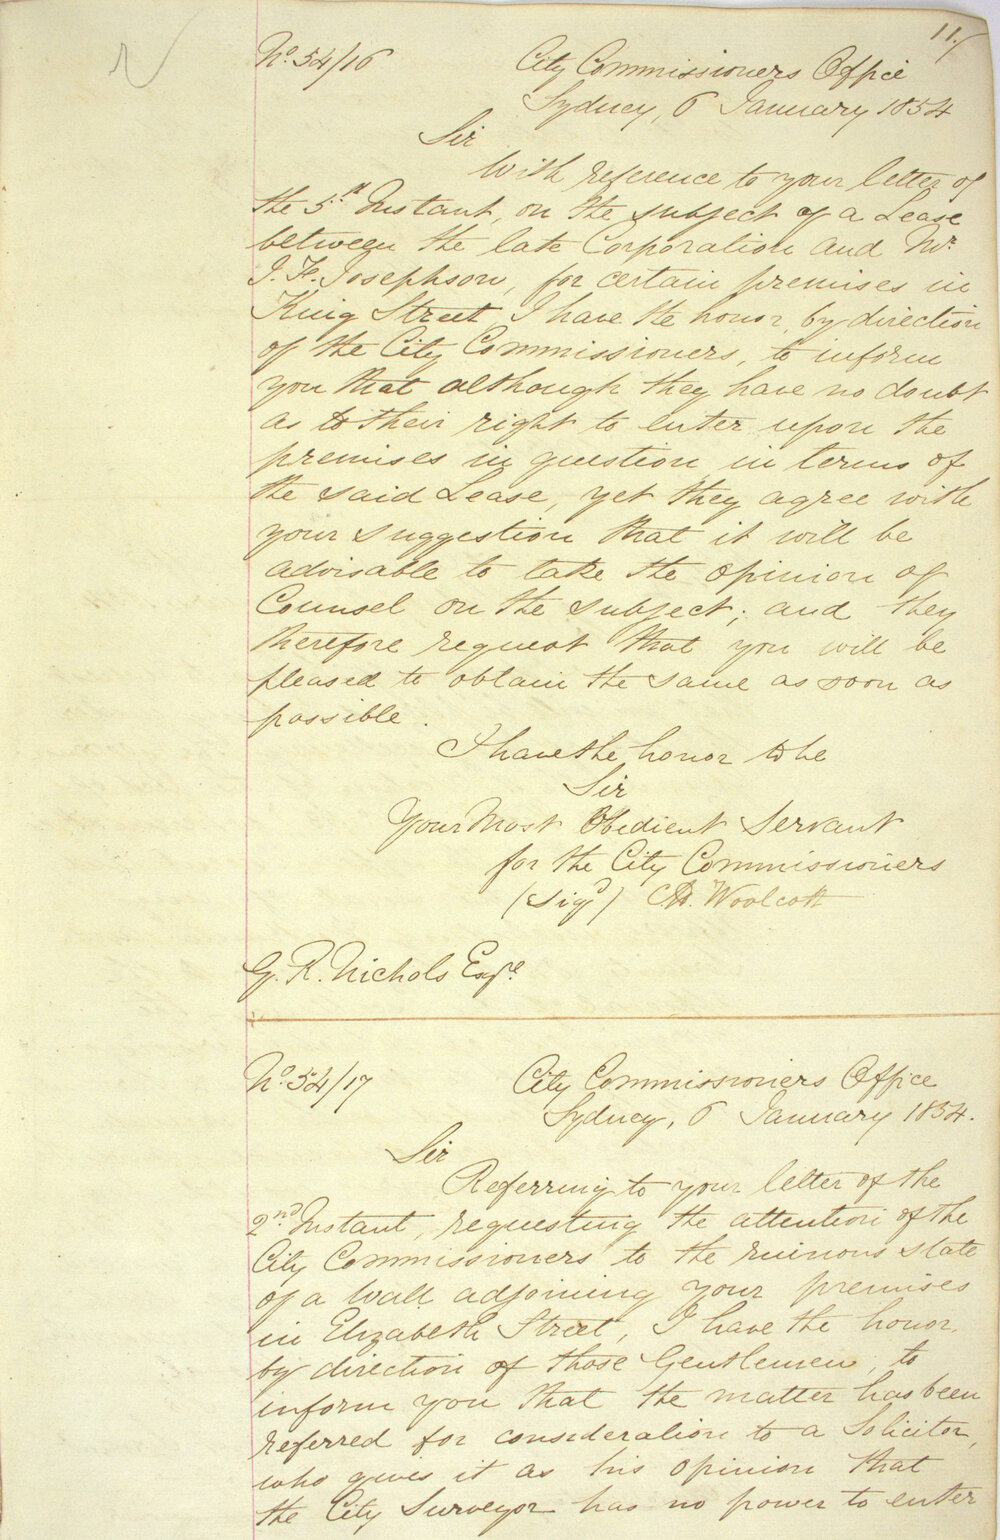 11.
No. 54/16 City Commissioners Office
Sydney, 6 January 1854
Sir
With reference to your letter of
the 5th Instant, on the subject of a Lease
between the late Corporation and Mr.
J. F. Josephson, for certain premises in
King Street I have the honor, by direction
of the City Commissioners, to inform
you that although they have no doubt
as to their right to enter upon the
premises in question in terms of
the said Lease, yet they agree with
your suggestion that it will be
advisable to take the opinion of
Counsel on the subject; and they
therefore request that you will be
pleased to obtain the same as soon as
possible.
I have the honor to be
Sir
Your Most Obedient Servant
for the City Commissioners
(Sigd) Woolcott
G. R. Nichols Esqre.
No. 54/17 City Commissioners Office
Sydney, 6 January 1854.
Sir
Referring to your letter of the
2nd Instant, requesting the attention of the
City Commissioners to the ruinous state
of a wall adjoining your premises
in Elizabeth Street, I have the honor,
by direction of those Gentlemen, to
inform you that the matter has been
referred for consideration to a Solicitor,
who gives it as his opinion that
the City Surveyor has no power to enter